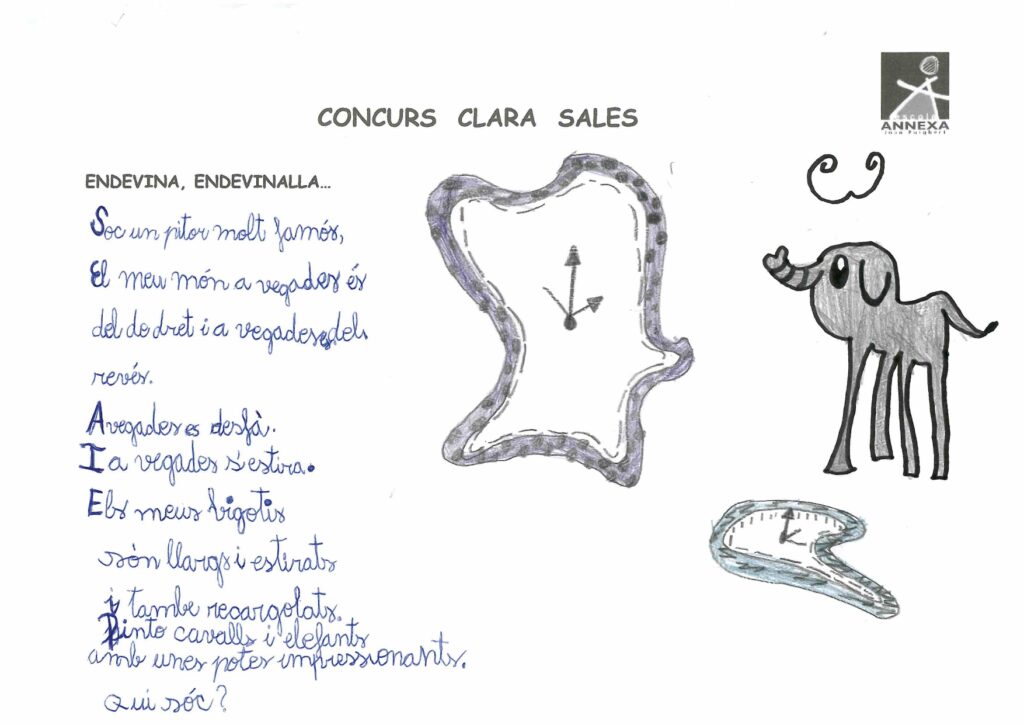 CONCURS CLARA SALES
escola
ANNEXA
Joan Puigbert
ENDEVINA, ENDEVINALLA...
Soc un pitor molt famós,
El meu món a vegades és
del do dret i a vegades es dels
revés.
A vegades es desfà.
I a vegades s'estira.
Els meus bigotis
són llargs i estirats
i tambe recargolats.
Pinto cavalls i elefants
amb unes potes impressionants.
Qui sóc?